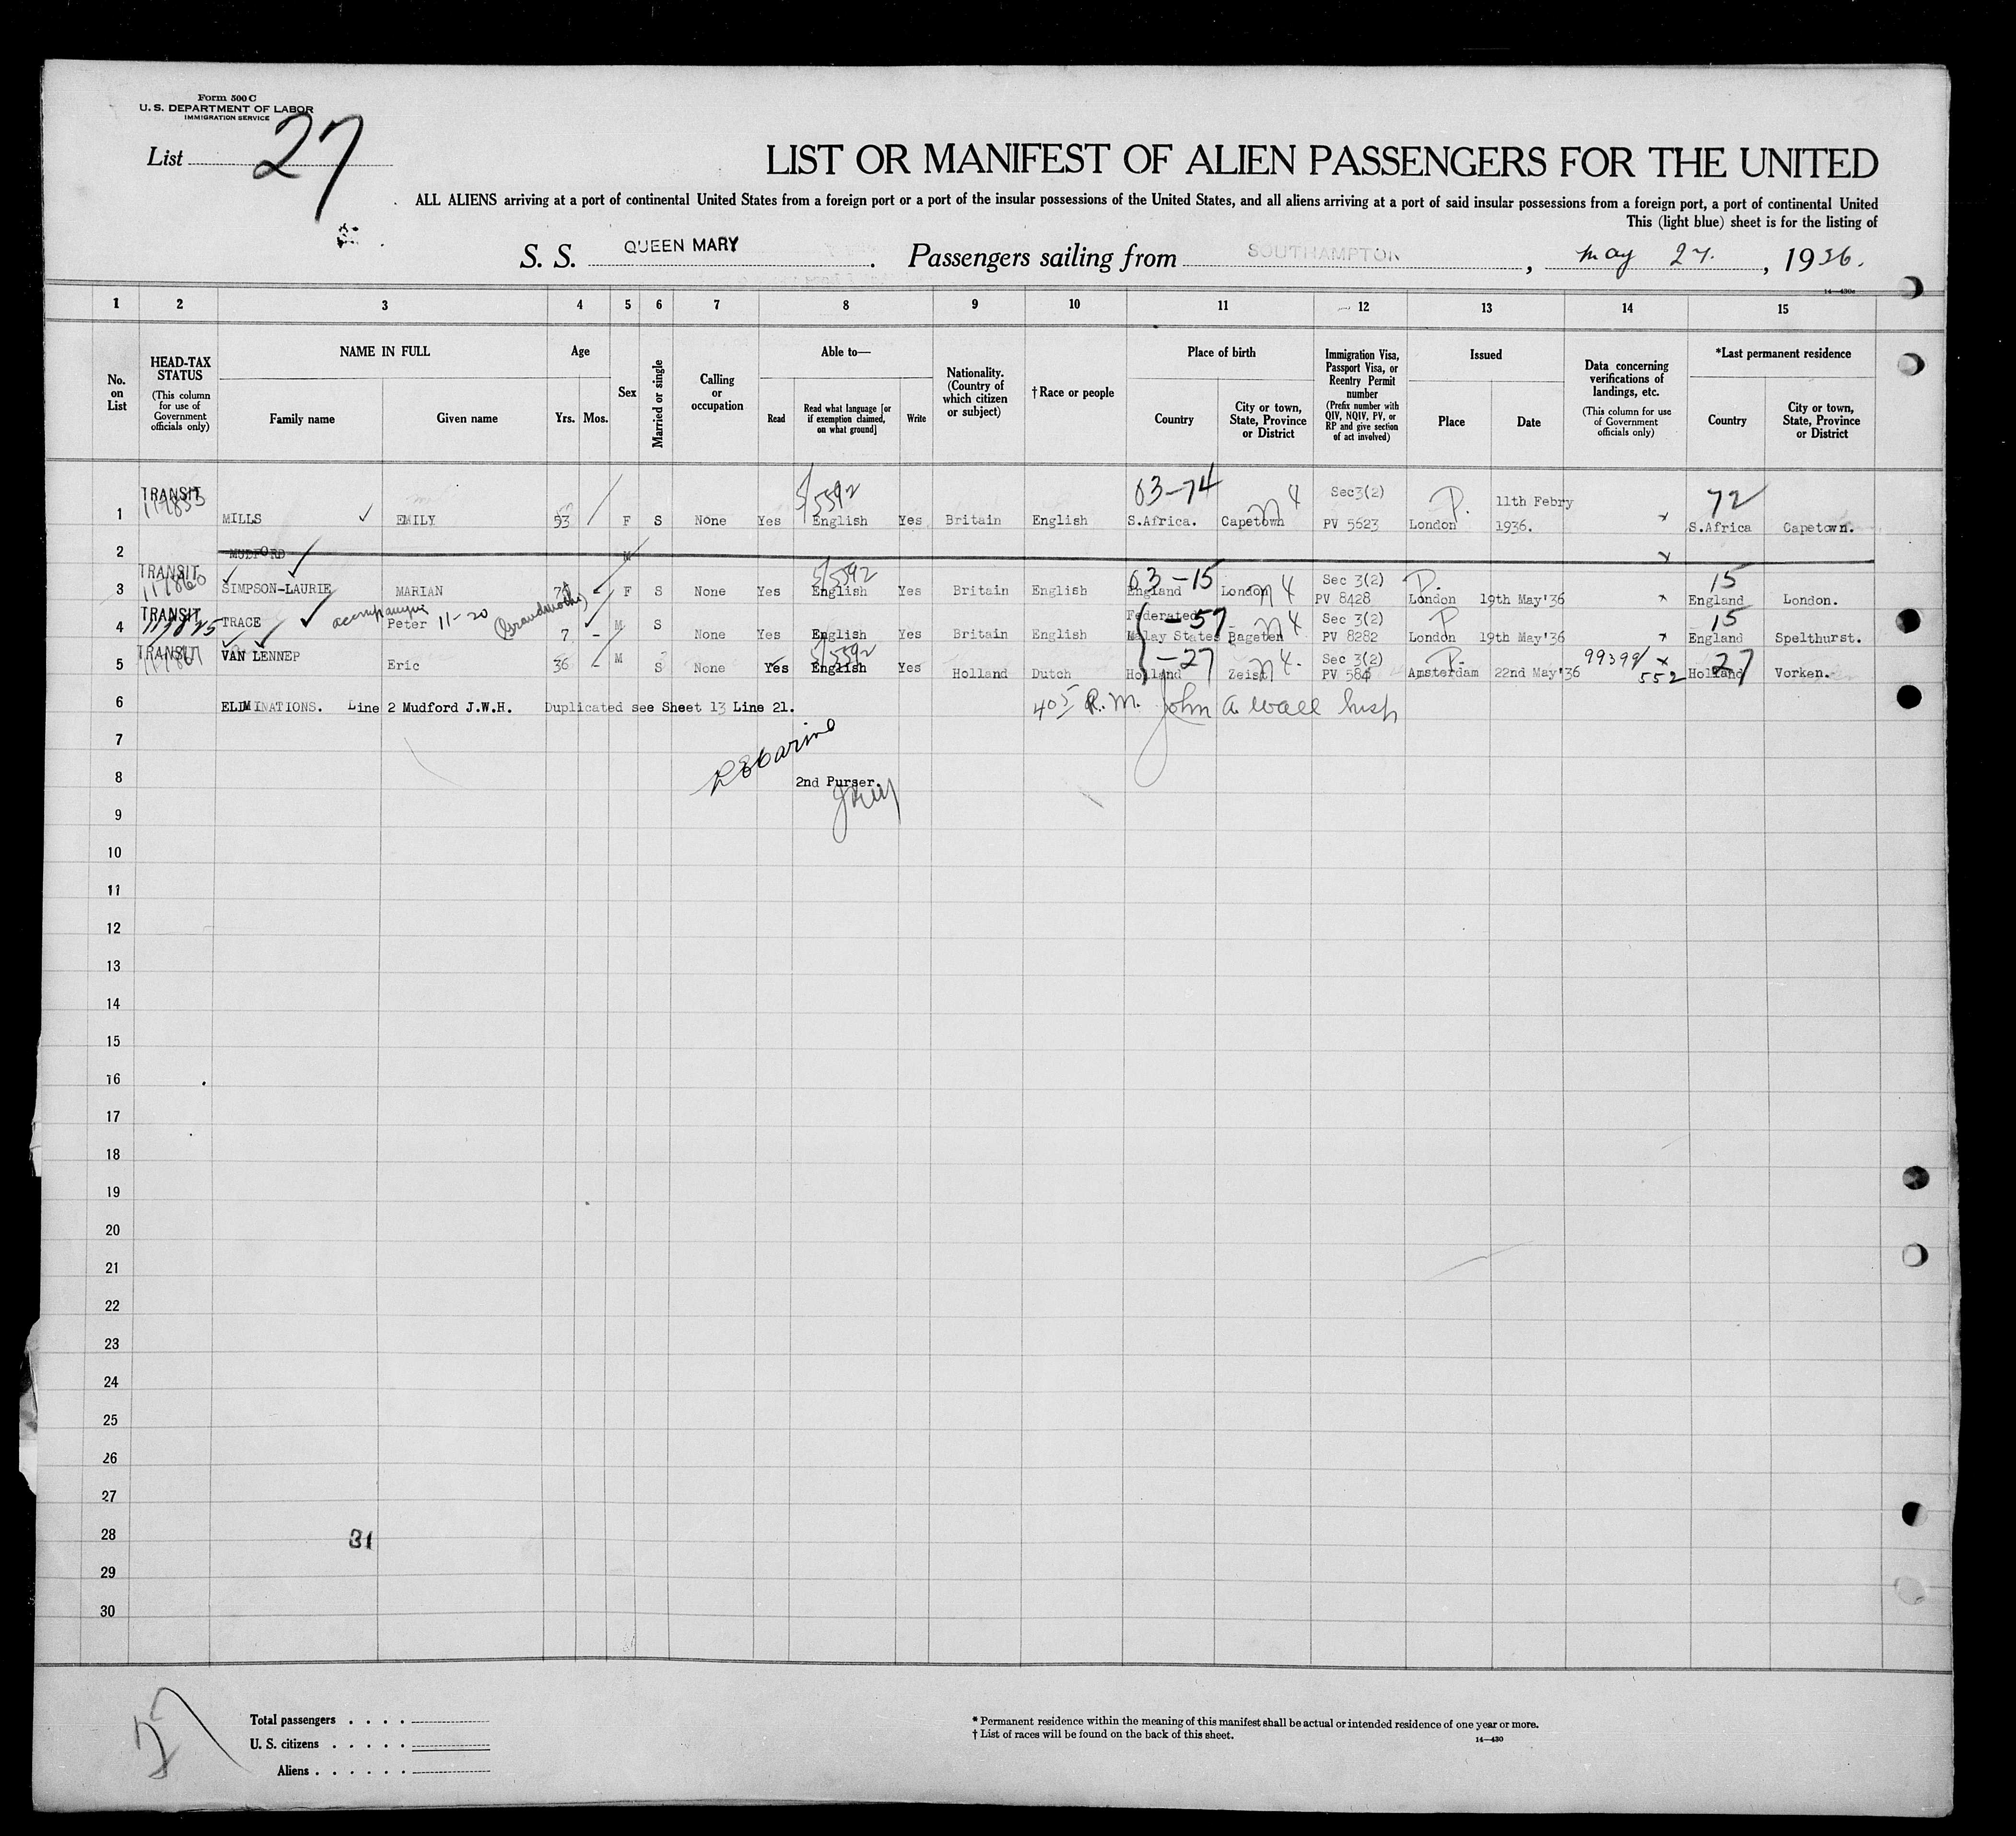 Form 500 C
U. S. DEPARTMENT OF LABOR
IMMIGRATION SERVICE
List 27
LIST OR MANIFEST OF ALIEN PASSENGERS FOR THE UNITED
ALL ALIENS arriving at a port of continental United States from a foreign port or a port of the insular possessions of the United States, and all aliens arriving at a port of said insular possessions from a foreign port, a port of continental United
This (light blue) sheet is for the listing of
S. S. QUEEN MARY. Passengers sailing from SOUTHAMPTON, May 27., 1936.
14—430c
1 2 3 4 5 6 7 8 9 10 11 12 13 14 15
No. on List
HEAD-TAX STATUS
(This column for use of Government officials only)
NAME IN FULL
Family name
Given name
Age
Yrs. Mos.
Sex
Married or single
Calling or occupation
Able to—
Read
Read what language [or if exemption claimed, on what ground]
Write
Nationality. (Country of which citizen or subject)
† Race or people
Place of birth
Country
City or town, State, Province or District
Immigration Visa, Passport Visa, or Reentry Permit number
(Prefix number with QIV, NQIV, PV, or RP and give section of act involved)
Issued
Place
Date
Data concerning verifications of landings, etc.
(This column for use of Government officials only)
*Last permanent residence
Country
City or town, State, Province or District
TRANSIT 5/5592 63-74 n4 Sec3(2) P. 11th Febry 72
1 MILLS EMILY 53 F S None Yes English Yes Britain English S.Africa. Capetown PV 5623 London 1936. x S.Africa Capetown.
2 MUDFORD M x
TRANSIT 117860 5/5592 63-15 n4 Sec 3(2) P. 15
3 SIMPSON-LAURIE MARIAN F S None Yes English Yes Britain English England London PV 8428 London 19th May'36 x England London.
TRANSIT accompanying 11-20 Grandmother Federated -57 n4 Sec 3(2) P 15
4 TRACE Peter 7 - M S None Yes English Yes Britain English Malay States Bageten PV 8282 London 19th May'36 x England Spelthurst.
TRANSIT 5/5592 -27 n4. Sec 3(2) P. 99399/552 x 27
5 VAN LENNEP Eric 36 - M S None Yes English Yes Holland Dutch Holland Zeist PV 584 Amsterdam 22nd May'36 Holland Vorken.
6 ELIMINATIONS. Line 2 Mudford J.W.H. Duplicated see Sheet 13 Line 21. John A Wall Insp
7
8 2nd Purser.
9
10
11
12
13
14
15
16
17
18
19
20
21
22
23
24
25
26
27
28 31
29
30
27
Total passengers . . . .
U. S. citizens . . . . .
Aliens . . . . . .
* Permanent residence within the meaning of this manifest shall be actual or intended residence of one year or more.
† List of races will be found on the back of this sheet.
14—430